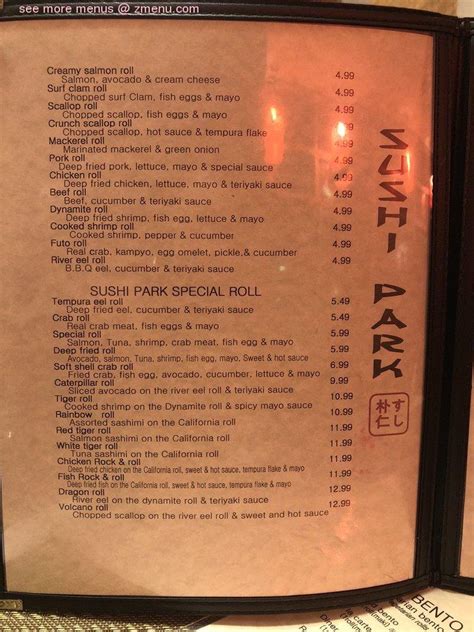 see more menus @ zmenu.com
Creamy salmon roll 4.99
Salmon, avocado & cream cheese
Surf clam roll 4.99
Chopped surf Clam, fish eggs & mayo
Scallop roll 4.99
Chopped scallop, fish eggs & mayo
Crunch scallop roll 4.99
Chopped scallop, hot sauce & tempura flake
Mackerel roll 4.99
Marinated mackerel & green onion
Pork roll 4.99
Deep fried pork, lettuce, mayo & special sauce
Chicken roll 4.99
Deep fried chicken, lettuce, mayo & teriyaki sauce
Beef roll 4.99
Beef, cucumber & teriyaki sauce
Dynamite roll 4.99
Deep fried shrimp, fish egg, lettuce & mayo
Cooked shrimp roll 4.99
Cooked shrimp, pepper & cucumber
Futo roll 4.99
Real crab, kampyo, egg omelet, pickle,& cucumber
River eel roll 4.99
B.B.Q eel, cucumber & teriyaki sauce
SUSHI PARK SPECIAL ROLL
Tempura eel roll 5.49
Deep fried eel, cucumber & teriyaki sauce
Crab roll 5.49
Real crab meat, fish eggs & mayo
Special roll 5.99
Salmon, Tuna, shrimp, crab meat, fish egg & mayo
Deep fried roll
Avocado, salmon, Tuna, shrimp, fish egg, mayo, Sweet & hot sauce
Soft shell crab roll 6.99
Fried crab, fish egg, avocado, cucumber, lettuce & mayo
Caterpillar roll 9.99
Sliced avocado on the river eel roll & teriyaki sauce
Tiger roll 10.99
Cooked shrimp on the Dynamite roll & spicy mayo sauce
Rainbow roll 10.99
Assorted sashimi on the California roll
Red tiger roll 11.99
Salmon sashimi on the California roll
White tiger roll 11.99
Tuna sashimi on the California roll
Chicken Rock & roll 11.99
Deep fried chicken on the California roll, sweet & hot sauce, tempura flake & mayo
Fish Rock & roll 11.99
Deep fried fish on the California roll, sweet & hot sauce, tempura flake & mayo
Dragon roll 12.99
River eel on the dynamite roll & teriyaki sauce
Volcano roll
Chopped scallop on the river eel roll & sweet and hot sauce
SUSHI PARK
すし
朴仁
BENTO